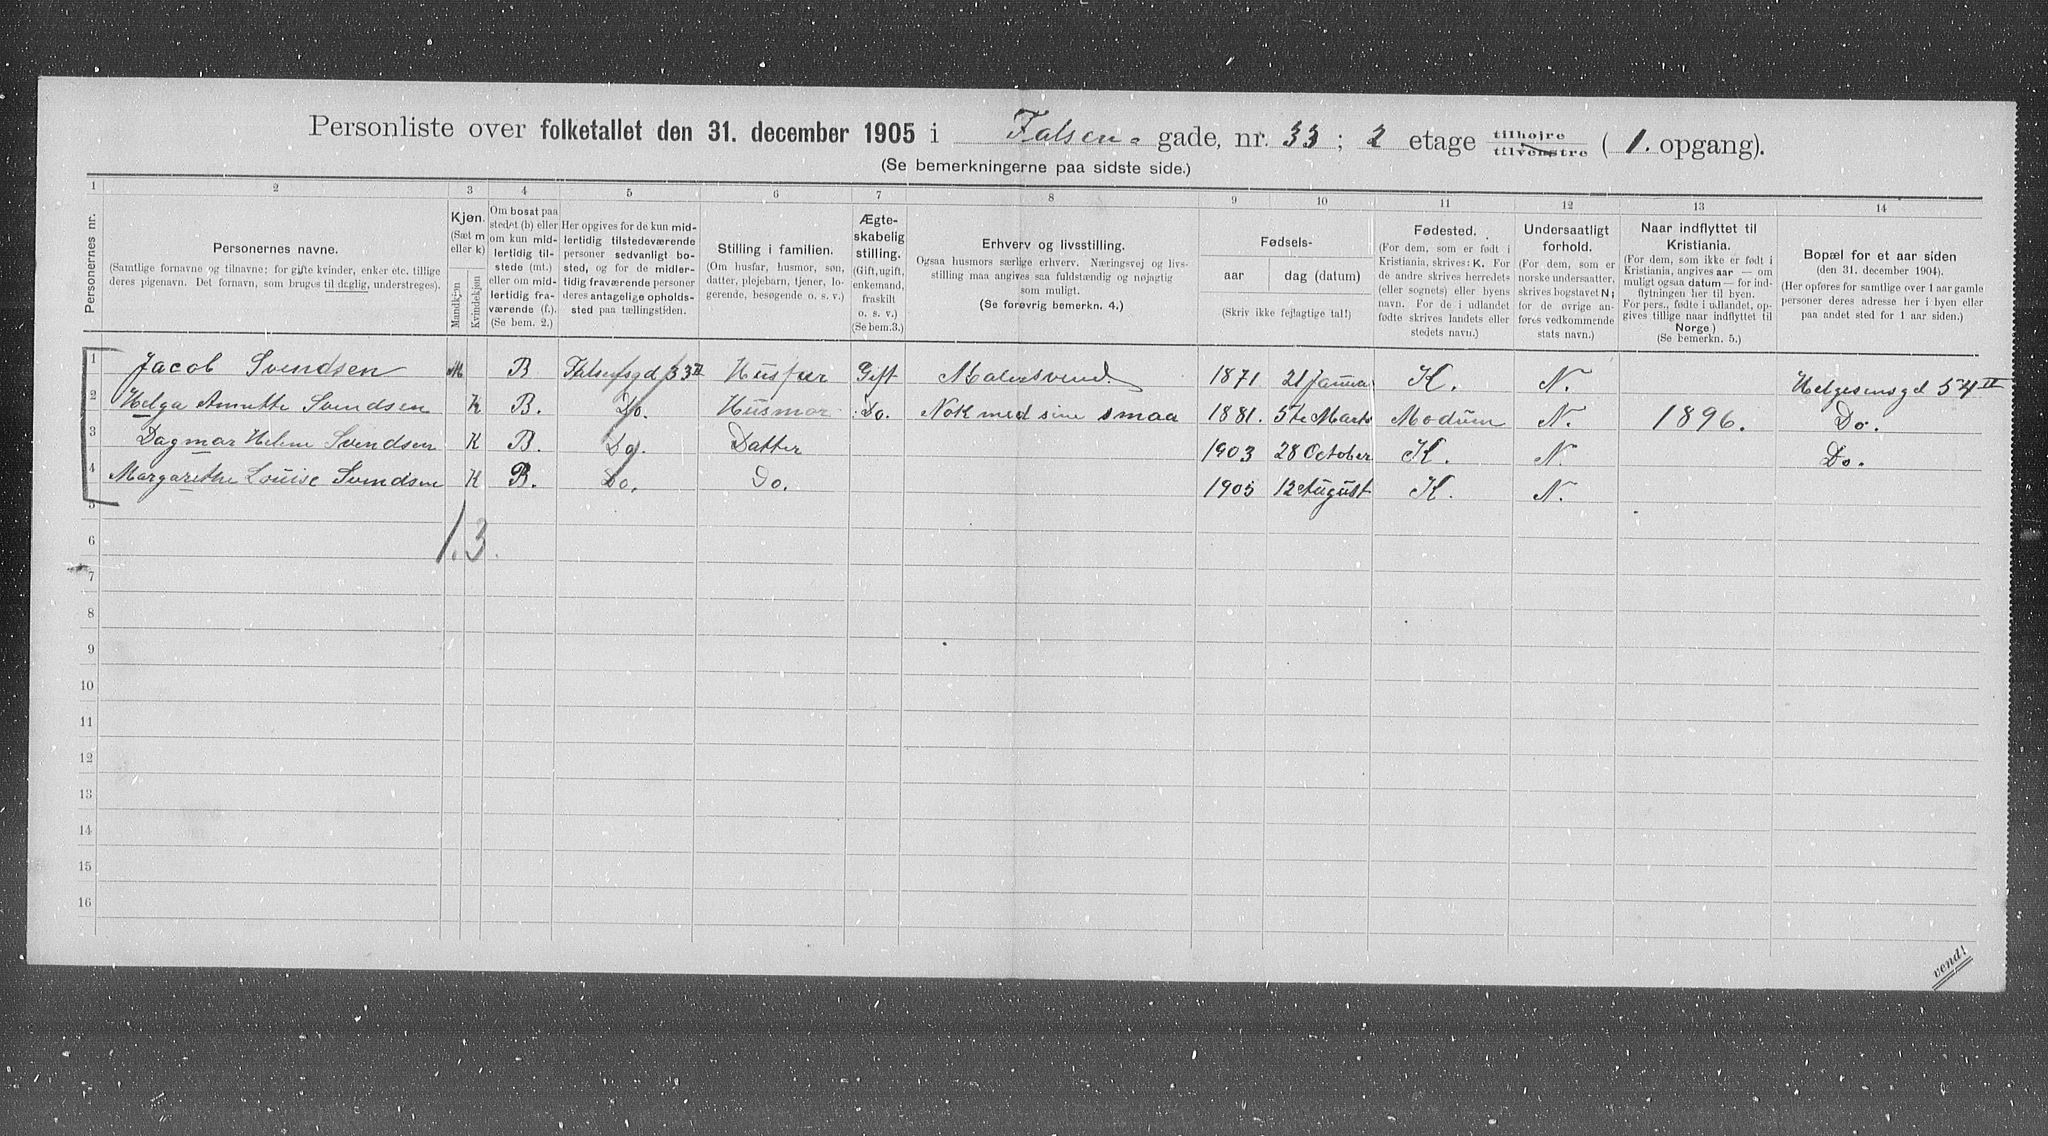 Personliste over folketallet den 31. december 1905 i Falsens gade, nr. 33; 2 etage tilhøjre tilvenstre (1. opgang).
(Se bemerkningerne paa sidste side.)
1 2 3 4 5 6 7 8 9 10 11 12 13 14
Personernes nr.
Personernes navne.
(Samtlige fornavne og tilnavne; for gifte kvinder, enker etc. tillige
deres pigenavn. Det fornavn, som bruges til daglig, understreges).
Kjøn.
(Sæt m
eller k)
Mandkjøn
Kvindekjøn
Om bosat paa
stedet (b) eller
om kun mid-
lertidig til-
stede (mt.)
eller om mid-
lertidig fra-
værende (f.).
(Se bem. 2.)
Her opgives for de kun mid-
lertidig tilstedeværende
personer sedvanligt bo-
sted, og for de midler-
tidig fraværende personer
deres antagelige opholds-
sted paa tællingstiden.
Stilling i familien.
(Om husfar, husmor, søn,
datter, plejebarn, tjener, lo-
gerende, besøgende o. s. v.)
Ægte-
skabelig
stilling.
(Gift, ugift,
enkemand,
fraskilt
o. s. v.)
(Se bem.3.)
Erhverv og livsstilling.
Ogsaa husmors særlige erhverv. Næringsvej og livs-
stilling maa angives saa fuldstændig og nøjagtig
som muligt.
(Se forøvrig bemerkn. 4.)
Fødsels-
aar
dag (datum)
(Skriv ikke fejlagtige tal!)
Fødested.
(For dem, som er født i
Kristiania, skrives: K. For
de andre skrives herredets
(eller sognets) eller byens
navn. For de i udlandet
fødte skrives landets eller
stedets navn.)
Undersaatligt
forhold.
(For dem, som er
norske undersaatter,
skrives bogstavet N;
for de øvrige an-
føres vedkommende
stats navn.)
Naar indflyttet til
Kristiania.
(For dem, som ikke er født i
Kristiania, angives aar — om
muligt ogsaa datum — for ind-
flytningen her til byen.
For pers., fødte i udlandet, op-
gives tillige naar indflyttet til
Norge)
(Se bemerkn. 5.)
Bopæl for et aar siden
(den 31. december 1904).
(Her opføres for samtlige over 1 aar gamle
personer deres adresse her i byen eller
paa andet sted for 1 aar siden.)
1 Jacob Svendsen M B Falsensgd 33 II Husfar Gift Malersvend. 1871 21 Janua K. N. Helgesensgd 54 II
2 Helga Annette Svendsen K B. Do. Husmor Do. Nok med sine smaa 1881. 5te Marts Modum N. 1896. Do.
3 Dagmar Helene Svendsen K B. Do. Datter 1903 28 October K. N. Do.
4 Margarethe Louise Svendsen K B. Do. Do. 1905 12 August K. N.
5
6 1. 3.
7
8
9
10
11
12
13
14
15
16
vend!